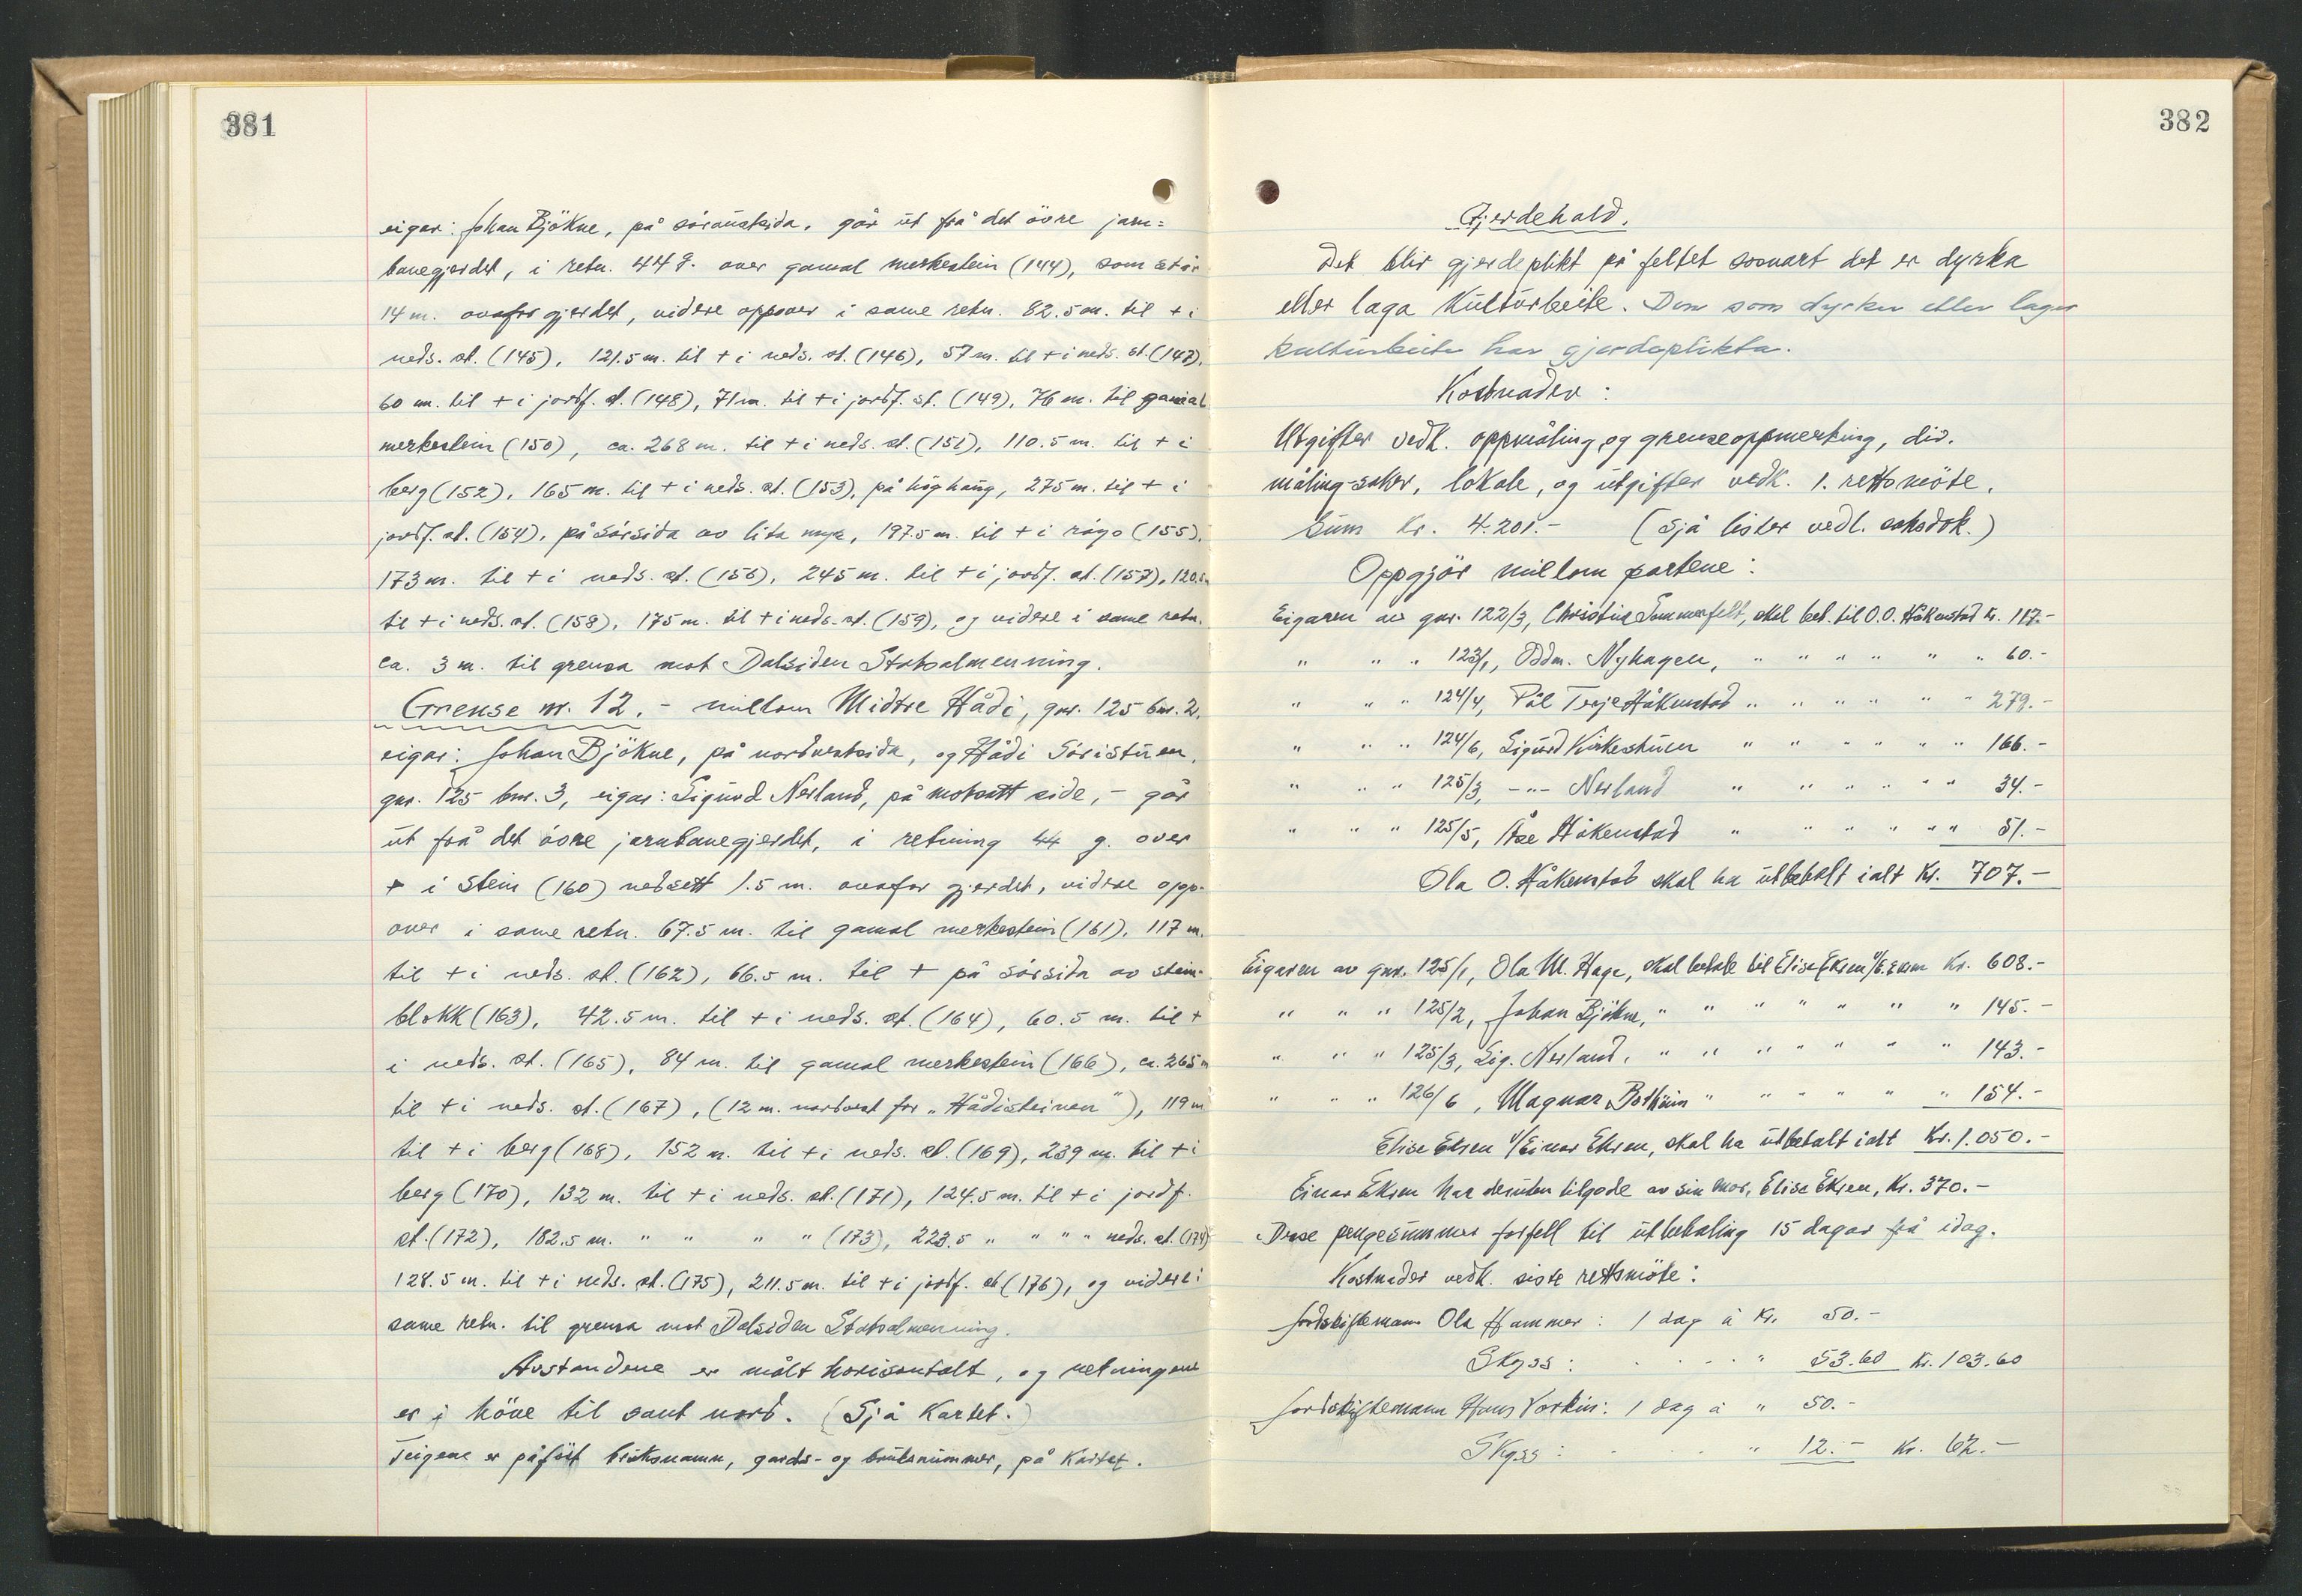 381
eigar: Johan Bjökne, på söraustsida. går ut frå det övre jarn=
banegjerdet, i retn. 44 g. over gamal merkestein (144), som står
14 m. ovafor gjerdet, videre oppover i same retn. 82.5 m. til + i
neds. st. (145), 121.5 m. til + i neds. st. (146), 57 m. til + i neds. st. (147),
60 m. til + i jordf. st. (148), 71 m. til + i jordf. st. (149), 76 m. til gamal
merkestein (150), ca. 268 m. til + i neds. st. (151), 110.5 m. til + i
berg (152), 165 m. til + i neds. st. (153), på höghaug, 275 m. til + i
jordf. st. (154), på sörsida av lita myr, 197.5 m. til + i röys (155),
173 m. til + i neds. st. (156), 245 m. til + i jordf. st. (157), 120.5 m
til + i neds. st. (158), 175 m. til + i neds. st. (159), og videre i same retn.
ca. 3 m. til grensa mot Dalsiden Statsalmenning.
Grense nr. 12. - millom Midtre Hådi, gnr. 125 bnr. 2,
eigar: Johan Bjökne, på nordvestsida, og Hådi Söristuen,
gnr. 125 bnr. 3, eigar: Sigurd Nerland, på motsatt side, - går
ut frå det övre jarnbanegjerdet, i retning 44 g. over
+ i stein (160) nedsett 1.5 m. ovafor gjerdet, videre opp-
over i same retn. 67.5 m. til gamal merkestein (161), 117 m.
til + i neds. st. (162), 66.5 m. til + på sörsida av stein-
blokk (163), 42.5 m. til + i neds. st. (164), 60.5 m. til +
i neds. st. (165), 84 m. til gamal merkestein (166), ca. 265 m
til + i neds. st. (167), (12 m. nordvest for „Hådisteinen"), 119 m
til + i berg (168), 152 m. til + i neds. st. (169), 239 m. til + i
berg (170), 132 m. til + i neds. st. (171), 124.5 m. til + i jordf.
st. (172), 182.5 m. " " " " (173), 223.5 " " " " neds. st. (174)
128.5 m. til + i neds. st. (175), 211.5 m. til + i jordf. st (176), og videre i
same retn. til grensa mot Dalsiden Statsalmenning.
Avstandene er målt horisontalt, og retningene
er i höve til sant nord. (Sjå Kartet.)
Teigene er påfört bruksnamn, gards- og bruksnummer, på Kartet.
382
Gjerdehald.
Det blir gjerdeplikt på feltet soovart det er dyrka
eller laga Kulturbeite. Den som dyrker eller lager
kulturbeite har gjerdeplikta.
Kostnader:
Utgifter vedk. oppmåling og grenseoppmerking, div.
måling-saker, lokale, og utgifter vedk. 1. rettsmöte.
Sum Kr. 4.201.- (Sjå lister vedl. saksdok.)
Oppgjör millom partene:
Eigaren av gnr. 122/3, Christine Sommerfelt, skal bet. til O.O. Håkenstad Kr. 117.-
" " " 123/1, Oddm. Nyhagen, " " " " " " 60.-
" " " 124/4, Pål Terje Håkenstad " " " " " " 279.-
" " " 124/6, Sigurd Kirkestuen " " " " " " 166.-
" " " 125/3, -"- Nerland " " " " " " 34.-
" " " 125/5, Åse Håkenstad " " " " " " 51.-
Ola O. Håkenstad skal ha utbetalt ialt Kr. 707.-
Eigaren av gnr. 125/1, Ola M. Hage, skal betale til Elise Ekren v/E. Ekren Kr. 608.-
" " " 125/2, Johan Bjökne, " " " " " " " 145.-
" " " 125/3, Sig. Nerland, " " " " " " " 143.-
" " " 126/6, Magnar Botheim " " " " " " 154.-
Elise Ekren v/Einar Ekren, skal ha utbetalt ialt Kr. 1.050.-
Einar Ekren har desuten tilgode av sin mor, Elise Ekren, Kr. 370.-
Disse pengesummer forfell til utbetaling 15 dagar frå idag.
Kostnader vedk. siste rettsmöte:
Jordskiftemann Ola Hammer: 1 dag à Kr. 50.-
Skyss: . . . . " 53.60 Kr. 103.60
Jordskiftemann Hans Vorkin: 1 dag à " 50.-
Skyss: . . . " 12.- Kr. 62.-